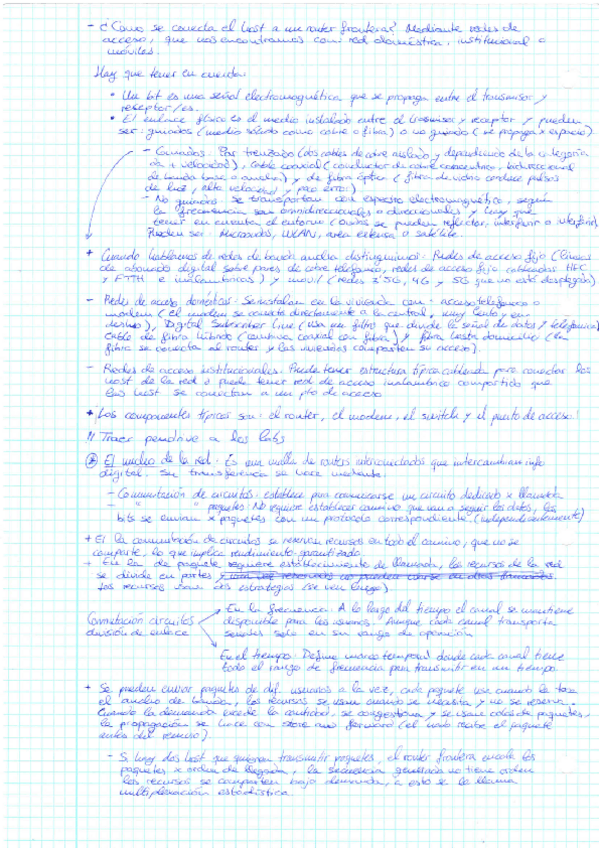 - ¿Cómo se conecta el host a un router frontera? Mediante redes de
acceso, que nos encontramos con: red doméstica, institucional o
móviles.
Hay que tener en cuenta:
• Un bit es una señal electromagnética que se propaga entre el transmisor y
receptor/es.
• El enlace físico es el medio instalado entre el trasmisor y receptor y pueden
ser: guiados (medio sólido como cobre o fibra) o no guiados (se propaga x espacio).
- Guiados: Par trenzado (dos cables de cobre aislado y dependiendo de la categoría
da + velocidad), cable coaxial (conductor de cobre concéntrico, bidireccional
de banda base o ancha) y de fibra óptica (fibra de vidrio conduce pulsos
de luz, alta velocidad y poco error)
- No guiados: se transportan con espectro electromagnético, según
la frecuencia son omnidireccionales o direccionales y hay que
tener en cuenta el entorno (ondas se pueden reflectar, interferir o
Pueden ser: Microondas, WLAN, área extensa o satélite.
+ Cuando hablamos de redes de banda ancha distinguimos: Redes de acceso fijo (líneas
de abonado digital sobre pares de cobre telefónico, redes de acceso fijo cableadas HFC
y FTTH e inalámbricas) y móvil (redes 3'5G, 4G y 5G que no está desplegado)
- Redes de acceso domésticas: Se instalan en la vivienda con: acceso telefónico o
modem (el modem se conecta directamente a la central, muy lento y en
desuso), Digital Subscriber Line (usa un filtro que divide la señal de datos y telefónica)
Cable de fibra híbrido (combina coaxial con fibra) y fibra hasta domicilio (la
fibra se conecta al router y las viviendas comparten su acceso).
- Redes de acceso institucionales: Puede tener estructura típica cableada para conectar los
host de la red o puede tener red de acceso inalámbrico compartido que
los host se conectan a un pto de acceso
+ Los componentes típicos son: el router, el modem, el switch y el punto de acceso.
!! Traer pendrive a los labs
* El núcleo de la red: Es una malla de routers interconectados que intercambian info
digital. Su transferencia se hace mediante:
- Conmutación de circuitos: establece para comunicarse un circuito dedicado x llamada
- " " paquetes: No requiere establecer camino que van a seguir los datos, los
bits se envían x paquetes con un protocolo correspondiente (independientemente)
+ El la conmutación de circuitos se reservan recursos en todo el camino, que no se
comparte, lo que implica rendimiento garantizado.
+ En la de paquete requiere establecimiento de llamada, los recursos de la red
se divide en partes
Los recursos usan dos estrategias (se ven luego)
Conmutación circuitos
división de enlace
En la frecuencia: A lo largo del tiempo el canal se mantiene
disponible para los usuarios. Aunque cada canal transporta
señales solo en su rango de operación
En el tiempo: Define marco temporal donde cada canal tiene
todo el rango de frecuencia para transmitir en un tiempo
+ Se pueden enviar paquetes de dif. usuarios a la vez, cada paquete usa cuando le toca
el ancho de banda, los recursos se usan cuando se necesita y no se reserva.
Cuando la demanda excede la cantidad, se congestiona y se usan colas de paquetes,
la propagación se hace con store and forward (el nodo recibe el paquete
antes del reenvío).
- Si hay dos host que quieran transmitir paquetes, el router frontera encola los
paquetes x orden de llegada, la secuencia generada no tiene orden
los recursos se comparten bajo demanda, a esto se le llama
multiplexación estadística.